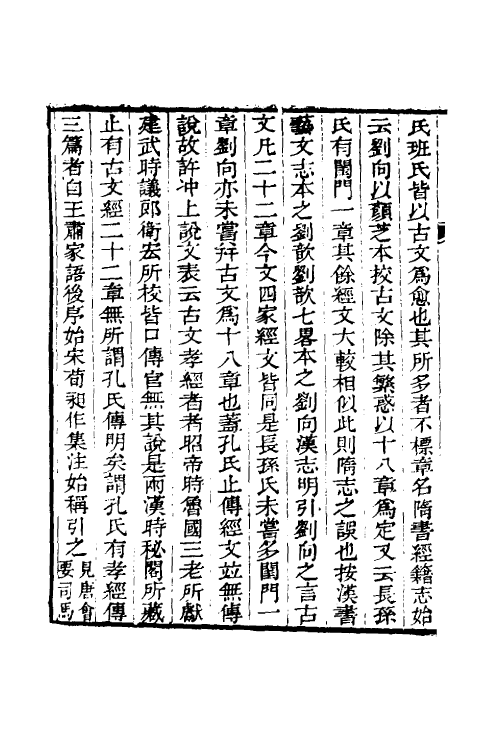 氏班氏皆以古文爲愈也其所多者不標章名隋書經籍志始
云劉向以顏芝本校古文除其繁惑以十八章爲定又云長孫
氏有閨門一章其餘經文大較相似此則隋志之誤也按漢書
藝文志本之劉歆劉歆七畧本之劉向漢志明引劉向之言古
文凡二十二章今文四家經文皆同是長孫氏未嘗多閨門一
章劉向亦未嘗辯古文爲十八章也蓋孔氏止傳經文並無傳
說故許冲上說文表云古文孝經者孝昭帝時魯國三老所獻
建武時議郎衛宏所校皆口傳官無其說是兩漢時秘閣所藏
止有古文經二十二章無所謂孔氏傳明矣謂孔氏有孝經傳
三篇者自王肅家語後序始宋荀昶作集注始稱引之見唐會
要司馬